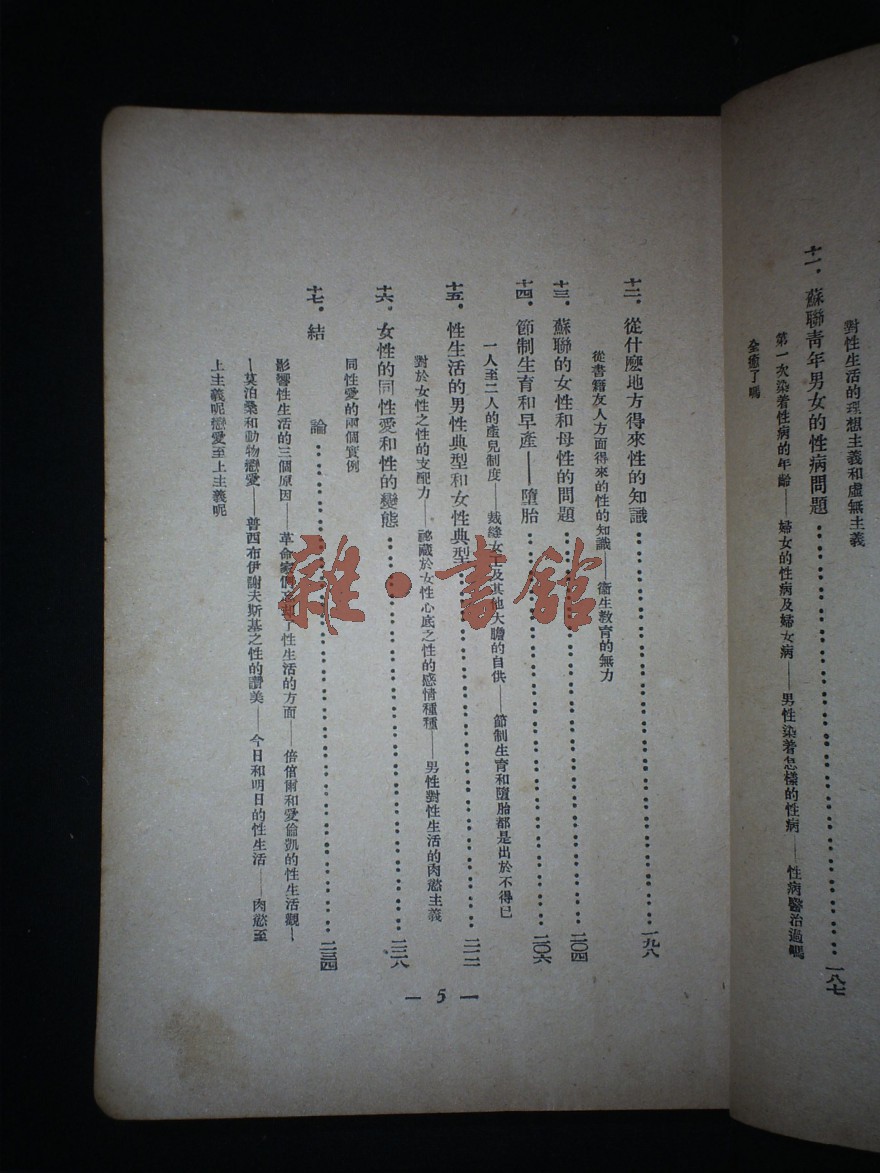 對性生活的理想主義和虛無主義
十一．蘇聯青年男女的性病問題……一八七
第一次染着性病的年齡——婦女的性病及婦女病——男性染着怎樣的性病——性病醫治過嗎
全癒了嗎
十二．從什麽地方得來性的知識……一九八
從書籍友人方面得來的性的知識——衞生敎育的無力
十三．蘇聯的女性和母性的問題……二〇四
十四．節制生育和早產——墮胎……二〇六
一人至二人的產兒制度——裁縫女工及其他大膽的自供——節制生育和墮胎都是出於不得已
十五．性生活的男性典型和女性典型……二一二
對於女性之性的支配力——祕藏於女性心底之性的感情種種——男性對性生活的肉慾主義
十六．女性的同性愛和性的變態……二二八
同性愛的兩個實例
十七．結論……二三四
影響性生活的三個原因——革命家們忘却了性生活的方面——倍倍爾和愛倫凱的性生活觀—
—莫泊桑和動物戀愛——普西布伊謝夫斯基之性的讚美——今日和明日的性生活——肉慾至
上主義呢戀愛至上主義呢
— 5 —
雜·書館